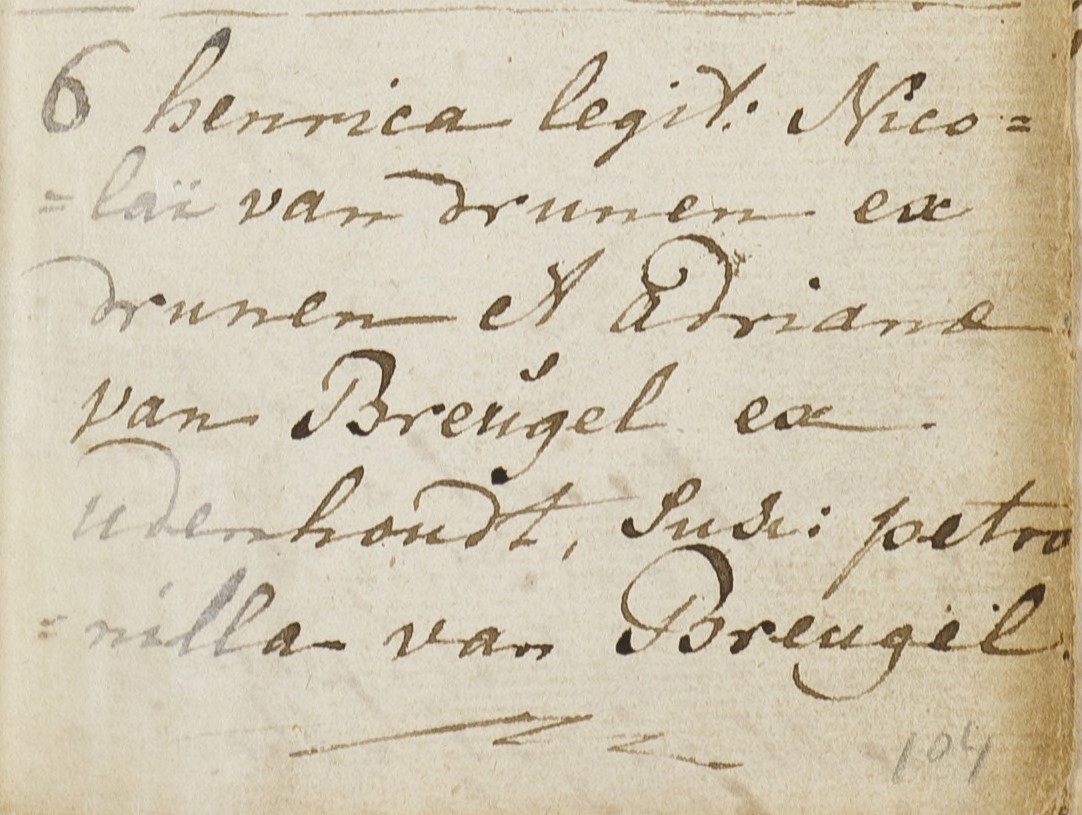 6 henrica legit: Nico=
=laï van drunen ex
drunen et Adriana
van Breŭgel ex
udenhoudt, Susc: petro
=nilla van Breugel.
104